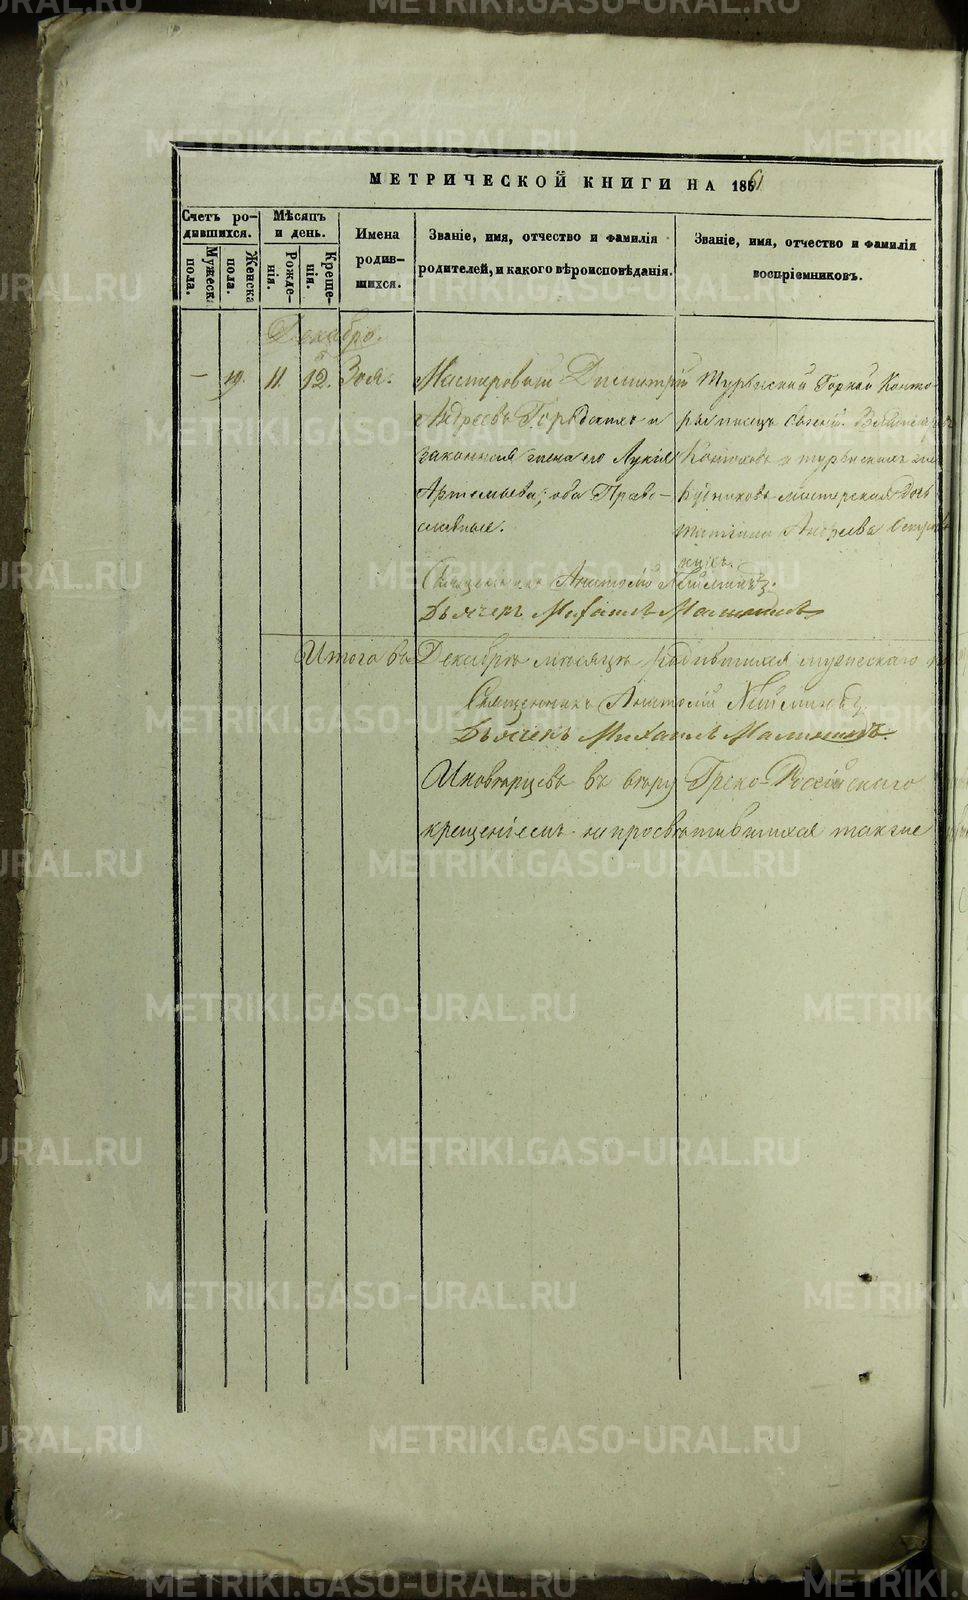 METRIKI.GASO-URAL.RU
МЕТРИЧЕСКОЙ КНИГИ НА 1861
Счетъ ро-
дившихся.
Мужеска
пола.
Женска
пола.
Мѣсяцъ
и день.
Рожде-
нія.
Креще-
нія.
Имена
родив-
шихся.
Званіе, имя, отчество и фамилія
родителей, и какого вѣроисповѣданія.
Званіе, имя, отчество и фамилія
воспріемниковъ.
Декабрь.
— 19. 11. 12. Зоя.
Мастеровый Димитрій
Андреевъ и
законная жена его Лукія
Артемьева; оба Право-
славные.
Турьинской Горной Конто-
ры писецъ
Конюховъ и турьинскихъ
Рудниковъ мастерская дочь
Андреева
Священникъ Анатолій
Дьячекъ Михаилъ
Итого въ Декабрѣ мѣсяцѣ родившихся мужескаго
Священникъ Анатолій
Дьячекъ Михаилъ
Иновѣрцевъ въ вѣру Греко-Россійскаго
крещеніемъ непросвѣтившихся также